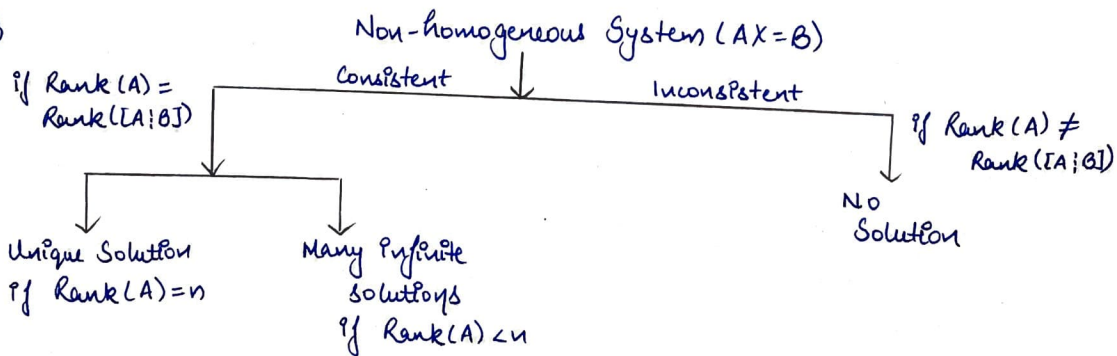 Non-homogeneous System (AX=B)
if Rank(A) =
Rank([A¦B])
Consistent
Inconsistent
if Rank(A) ≠
Rank([A¦B])
Unique Solution
if Rank(A)=n
Many infinite
solutions
if Rank(A)<n
No
Solution